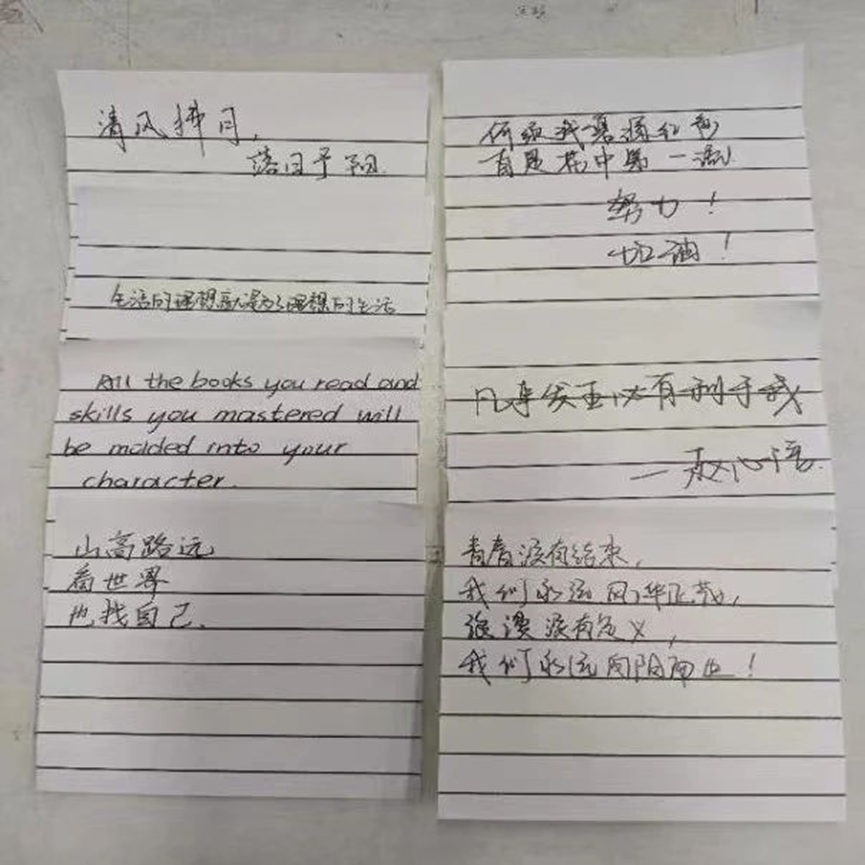 清风拂月,
落日予阳.
生活的理想就是为了理想的生活
All the books you read and
skills you mastered will
be molded into your
character.
山高路远
看世界
也找自己.
何须浅碧深红色
自是花中第一流
努力!
加油!
凡事发生必有利于我
青春没有结束,
我们永远风华正茂,
浪漫没有定义,
我们永远向阳而生!